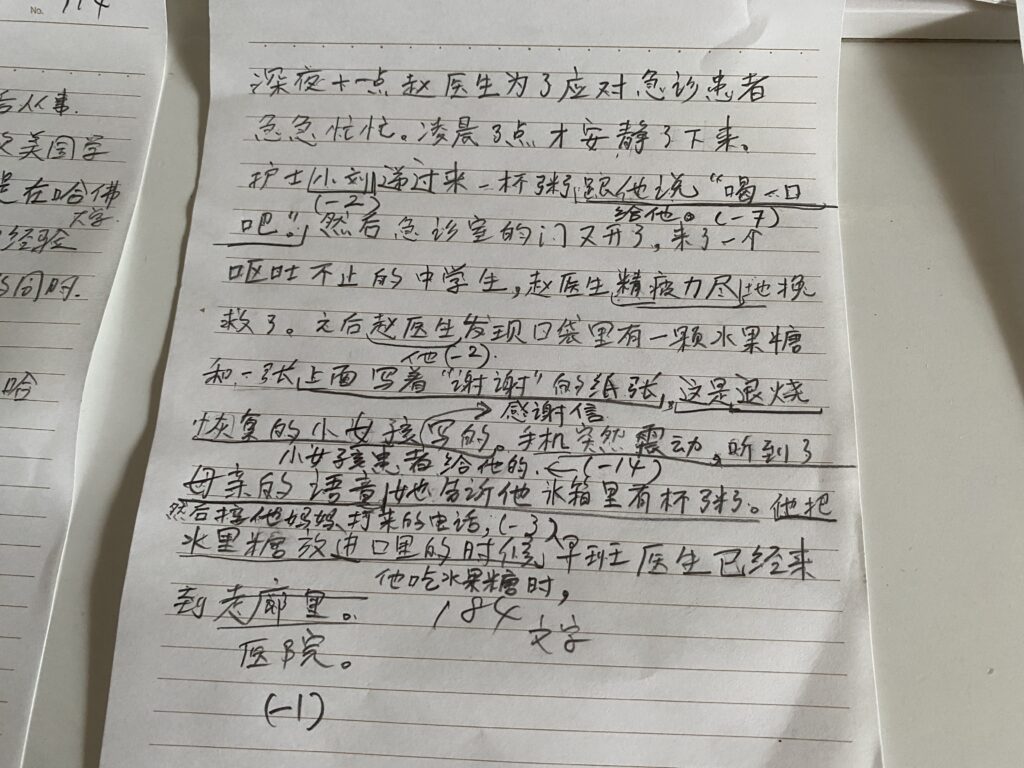 No. 114
告人事.
美国学
是在哈佛
大学.
经验
同时.
哈
深夜十一点赵医生为了应对急诊患者
急急忙忙。凌晨3点才安静了下来。
护士小刘递过来一杯粥,跟他说“喝一口
(-2) 给他。(-7)
吧。”然后急诊室的门又开了,来了一个
呕吐不止的中学生,赵医生精疲力尽地挽
救了。之后赵医生发现口袋里有一颗水果糖
他(-2).
和一张上面写着“谢谢”的纸张,这是退烧
感谢信
恢复的小女孩写的。手机突然震动,听到了
小女孩患者给他的. (-14)
母亲的语音,她告诉他冰箱里有杯粥。他把
然后接他妈妈打来的电话,(-3)
水里糖放进口里的时候,早班医生已经来
他吃水果糖时,
到走廊里。 184 文字
医院。
(-1)